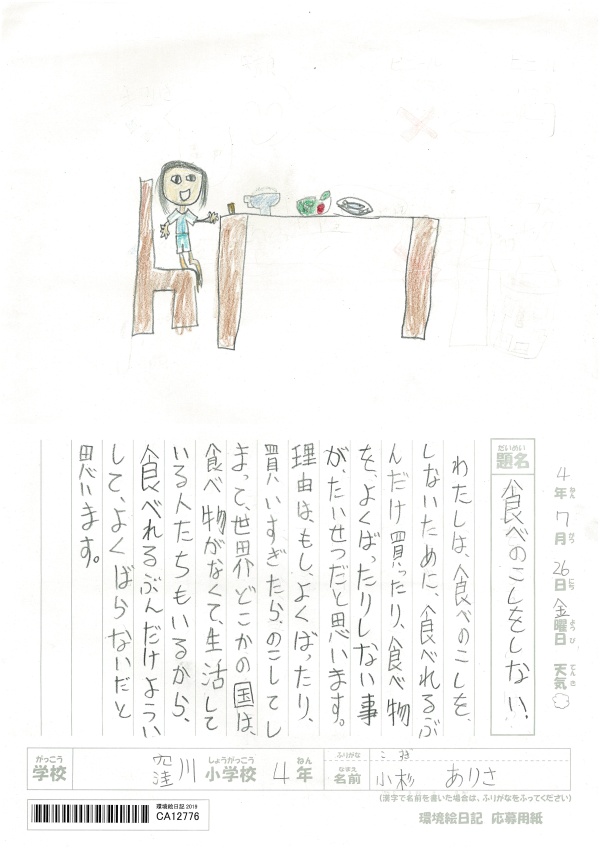 4年ねん7月がつ26日にち金曜日ようび天気てんき
だいめい
題名
食べのこしをしない!
わたしは、食べのこしを、
しないために、食べれるぶ
んだけ買ったり、食べ物
を、よくばったりしない事
が、たいせつだと思います。
理由は、もし、よくばったり、
買いすぎたら、のこしてし
まって、世界どこかの国は、
食べ物がなくて、生活して
いる人たちもいるから、
食べれるぶんだけようい
して、よくばらないだと
思います。
がっこう
学校
窪川
しょうがっこう
小学校
4
ねん
年
ふりがな
こすぎ
なまえ
名前
小杉 ありさ
(漢字で名前を書いた場合は、ふりがなをふってください)
環境絵日記2019
CA12776
環境絵日記 応募用紙